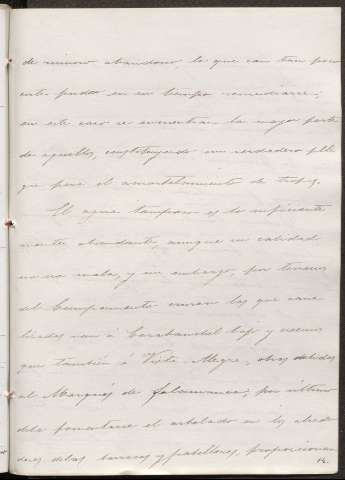 de minoro abandono, lo que con tan poco
coste pudo en su tiempo remediarse;
en este caso se encuentran la mayor parte
de aquellos, constituyendo un verdadero peli
gro para el acuartelamiento de tropas.
El agua tampoco es lo suficiente
mente abundante, aunque su calidad
no sea mala, y sin embargo, por terrenos
del Campamento cruzan las que cana
lizadas van á Carabanchel bajo y
que también á Vista Alegre, obras debidas
al Marqués de Salamanca; por último
debe fomentarse el arbolado en los alrede
dores de los barracones y pabellones, proporcionan
14.